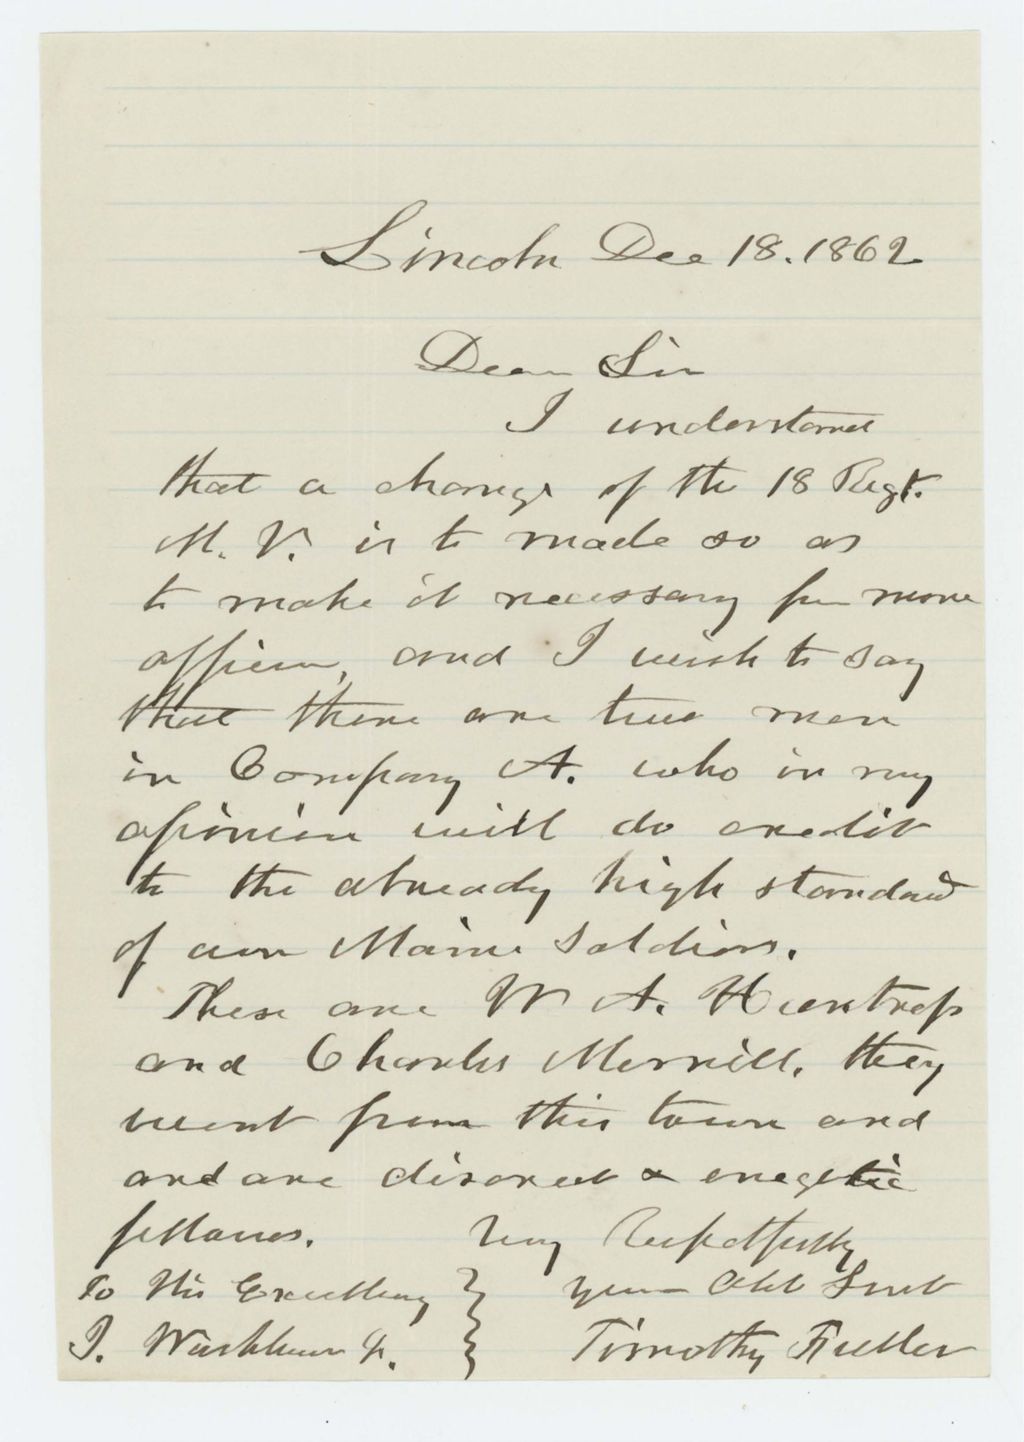 Lincoln Dec 18. 1862
Dear Sir
I understand
that a change of the 18 Regt.
M. V. is to made so as
to make it necessary for more
officers, and I wish to say
that there are two men
in Company A. who in my
opinion will do credit
to the already high standard
of our Maine Soldiers.
These are W A. Huntress
and Charles Merrill. they
went from this town and
and are discreet & enegetic
fellows. Very Respetfully
To His Excellency } your Obt Srvt
I. Washburn Jr. } Timothy Fuller